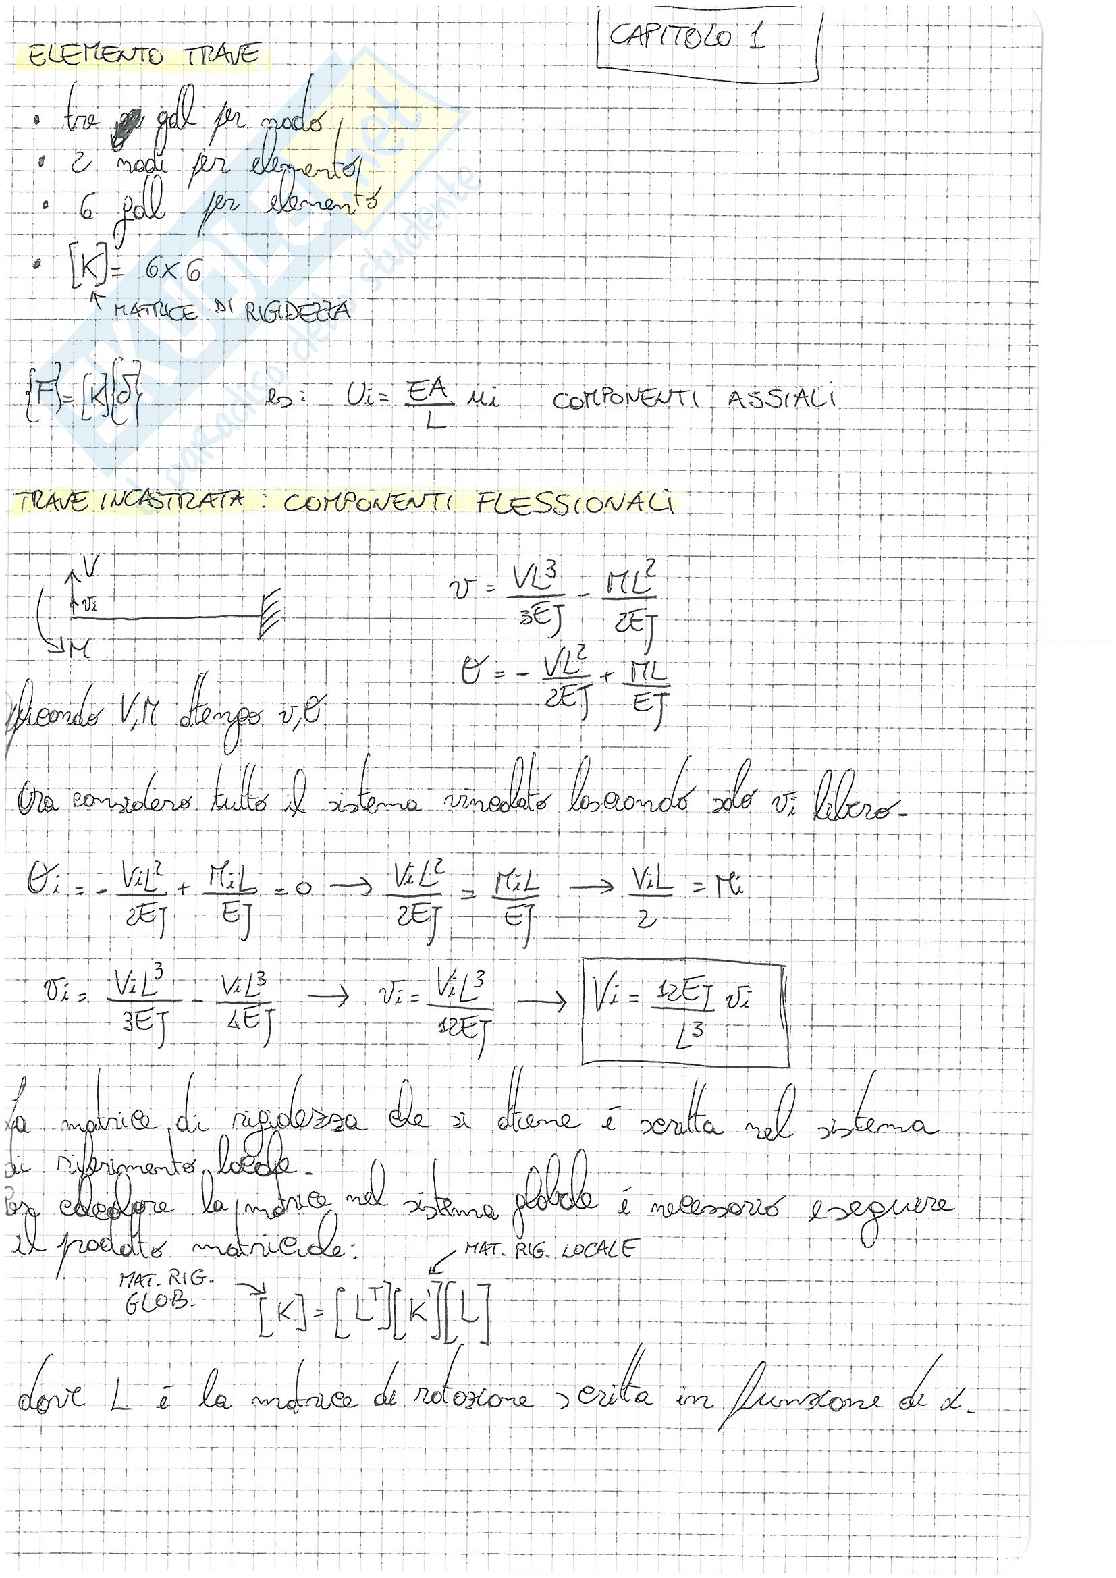 CAPITOLO 1
ELEMENTO TRAVE
• tre gdl per nodo
• 2 nodi per elemento
• 6 gdl per elemento
• [K] = 6x6
MATRICE DI RIGIDEZZA
{F}=[K]{δ} es: Ui = EA/L ui COMPONENTI ASSIALI
TRAVE INCASTRATA: COMPONENTI FLESSIONALI
V
vi
M
v = VL³/3EJ - ML²/2EJ
θ = - VL²/2EJ + ML/EJ
V,M ottengo v,θ
Ora considero tutto il sistema vincolato lasciando solo vi libero.
θi = - ViL²/2EJ + MiL/EJ = 0 → ViL²/2EJ = MiL/EJ → ViL/2 = Mi
vi = ViL³/3EJ - ViL³/4EJ → vi = ViL³/12EJ → Vi = 12EJ/L³ vi
La matrice di rigidezza che si ottiene é scritta nel sistema
di riferimento locale.
Per calcolare la matrice nel sistema globale é necessario eseguire
il prodotto matriciale:
MAT. RIG. LOCALE
MAT. RIG.
GLOB.
[K] = [Lᵀ][K'][L]
dove L é la matrice di rotazione scritta in funzione di α.